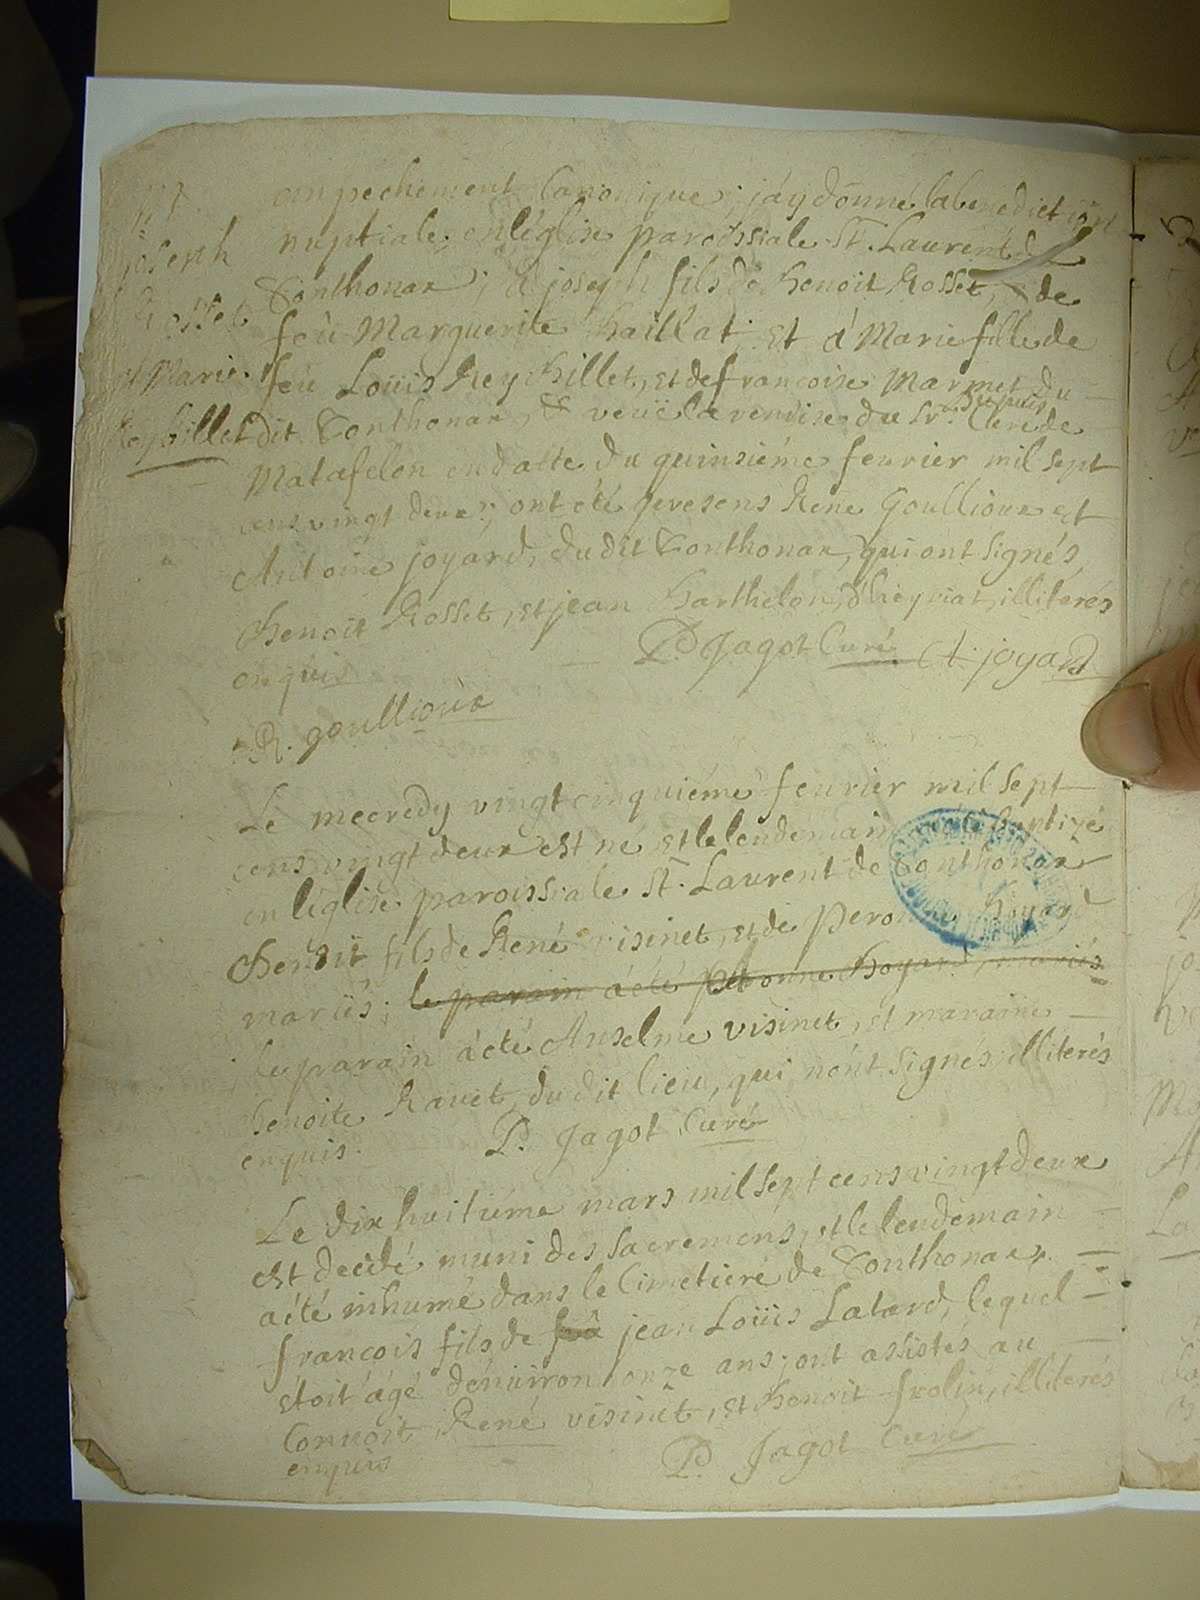 empechement Canonique, j'ay donné la benediction
nuptiale en l'église paroissiale St. Laurent de
Tonthonax, à joseph fils de Benoit Rosset, & de
feüe Marguerite Chaillat, et á Marie fille de
feu Loüis Reybillet, et de francoise Marmet du
dit Tonthonax, & veüe la remise du Sr. Curé de
Matafelon en datte du quinsiéme fevrier mil sept
cens vingt deux; ont été presens René Goullioux et
Antoine joyard, du dit Tonthonax, qui ont signés,
Benoit Rosset, et jean Barthelon, d'heyriat, illiterés
enquis
P. Jagot Curé A. joyard
R. goullioux
joseph
Rosset
et Marie
Reybillet
Le mecredy vingt cinquiéme fevrier mil sept
cens vingt deux est né et le lendemain a été baptizé
en l'église paroissiale St. Laurent de Tonthonax
Benoit fils de René visinet, et de Peronne Boyard
mariés; le parain á été Peronne Boyard, mariés
Le parain á été Anselme visinet, et maraine
Benoite Ravet, du dit lieu, qui n'ont signés illiterés
enquis. P. Jagot Curé
Le dix huitiéme mars mil sept cens vingt deux
est decédé muni des Sacremens, et le lendemain
a été inhumé dans le Cimetiere de Tonthonax
francois fils de feu jean Loüis Latard, lequel
étoit ágé d'environ onze ans; ont assistés au
Convoit, René visinet, et Benoit frolin, illiterés
enquis P. Jagot Curé